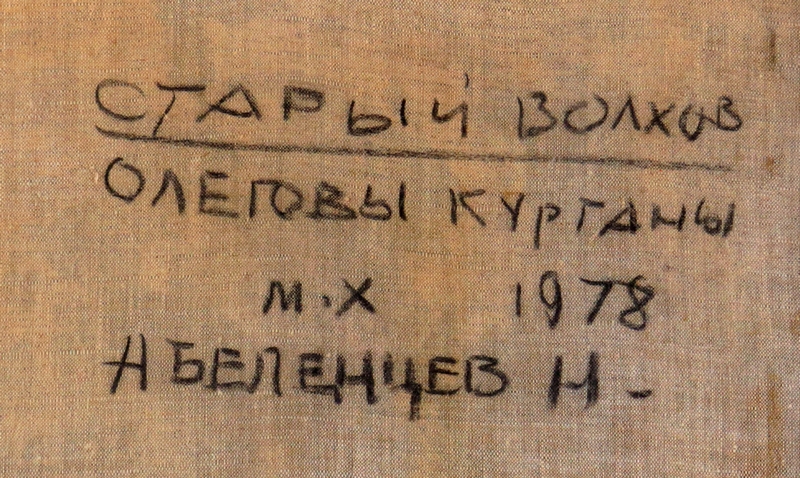 СТАРЫЙ ВОЛХОВ
ОЛЕГОВЫ КУРГАНЫ
м.х 1978
АБЕЛЕНЦЕВ Н-